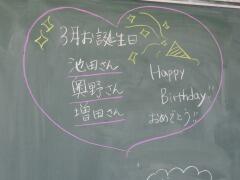 3月お誕生日
池田さん
奥野さん
増田さん
Happy
Birthday!!
おめでとう!!